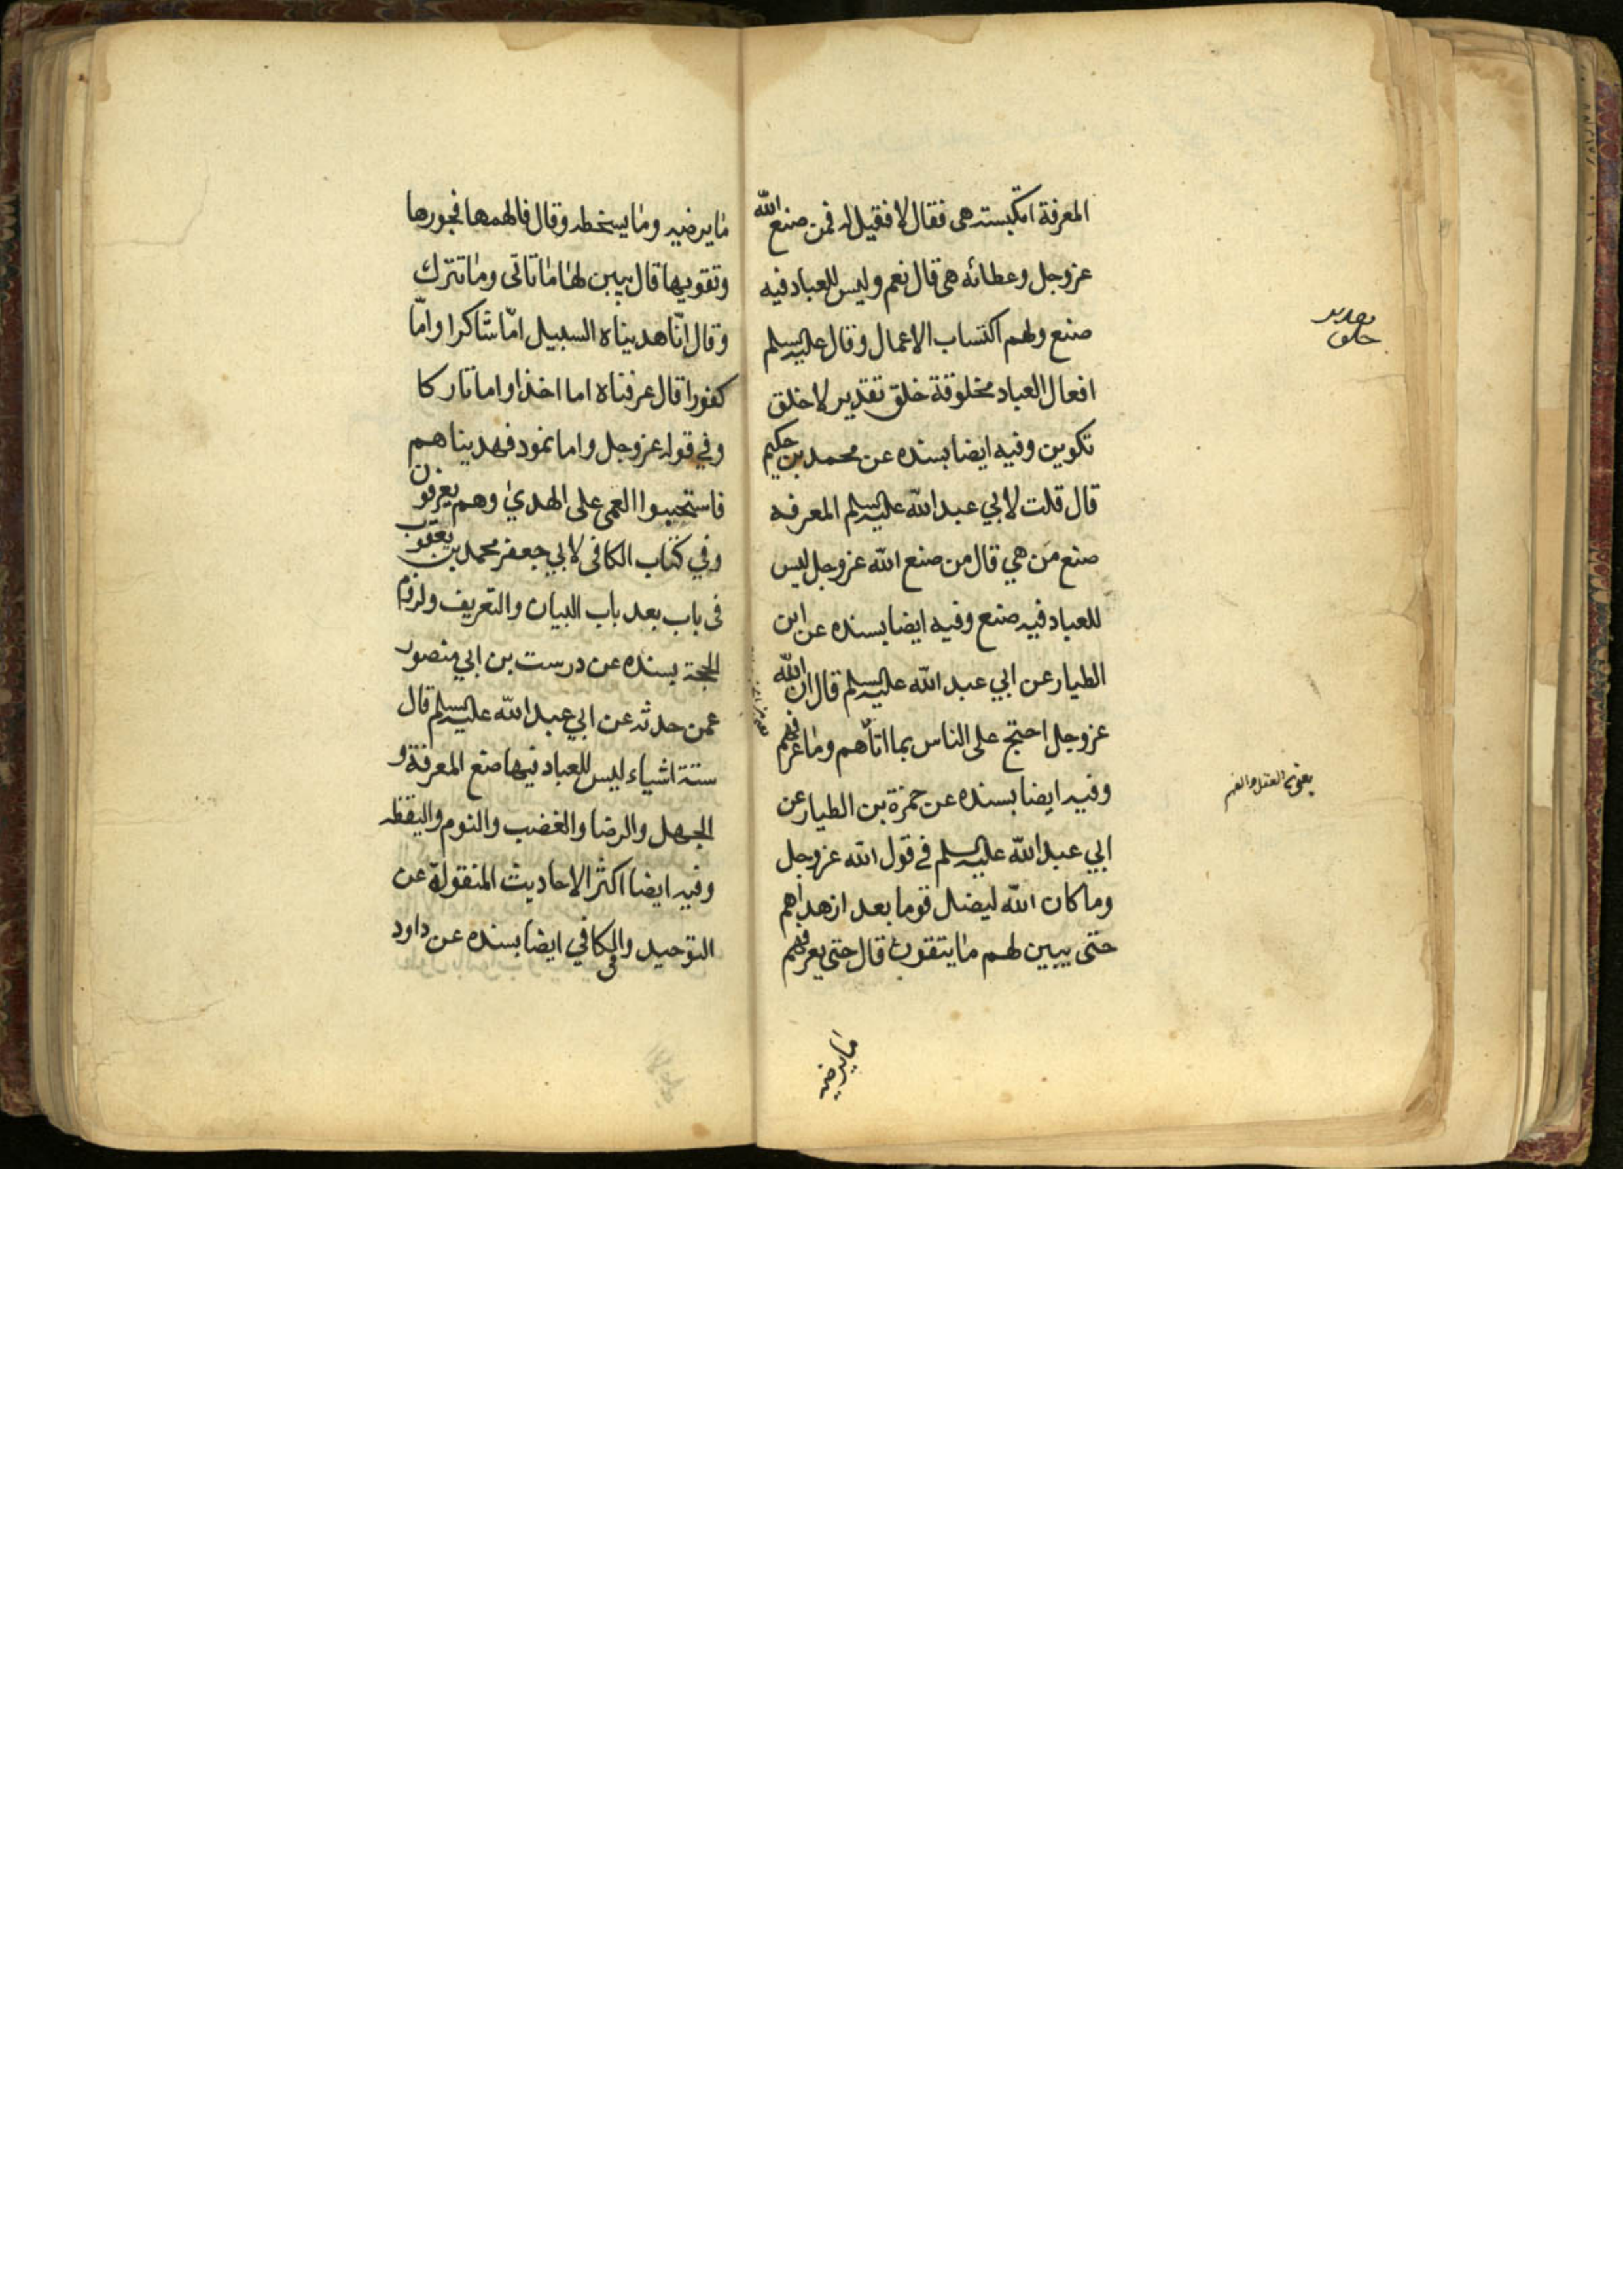 المعرفة امكتسبته هى فقال لا فقيل له فمن صنع الله
عزوجل وعطائه هى قال نعم وليس للعباد فيه
صنع ولهم اكتساب الاعمال وقال عليه السلم
افعال العباد مخلوقة خلق تقدير لا خلق
تكوين وفيه ايضا بسنده عن محمد بن حكيم
قال قلت لابي عبد الله عليه السلم المعرفه
صنع من هي قال من صنع الله عزوجل ليس
للعباد فيه صنع وفيه ايضا بسنده عن ابن
الطيار عن ابي عبد الله عليه السلم قال ان الله
عزوجل احتج على الناس بما اتاهم وما عرفهم
وفيه ايضا بسنده عن حمزة بن الطيار عن
ابي عبد الله عليه السلم في قول الله عزوجل
وما كان الله ليضل قوما بعد اذ هداهم
حتى يبين لهم ما يتقون قال حتى يعرفهم
ما يرضيه
تقدير
خلق
يعني العقل والفهم
ما يرضيه وما يسخطه وقال فالهمها فجورها
وتقويها قال يبين لها ما تاتى وما تترك
وقال انّا هديناه السبيل امّا شاكرا وامّا
كفورا قال عرفناه اما اخذا واما تاركا
وفي قوله عزوجل واما ثمود فهديناهم
فاستحبوا العمى على الهدي وهم يعرفون
وفي كتاب الكافى لابي جعفر محمد بن يعقوب
فى باب بعد باب البيان والتعريف ولزوم
الحجة بسنده عن درست بن ابي منصور
عمن حدثه عن ابي عبد الله عليه السلم قال
ستة اشياء ليس للعباد فيها صنع المعرفة و
الجهل والرضا والغضب والنوم واليقظه
وفيه ايضا اكثر الاحاديث المنقولة عن
التوحيد وفى الكافي ايضا بسنده عن داود